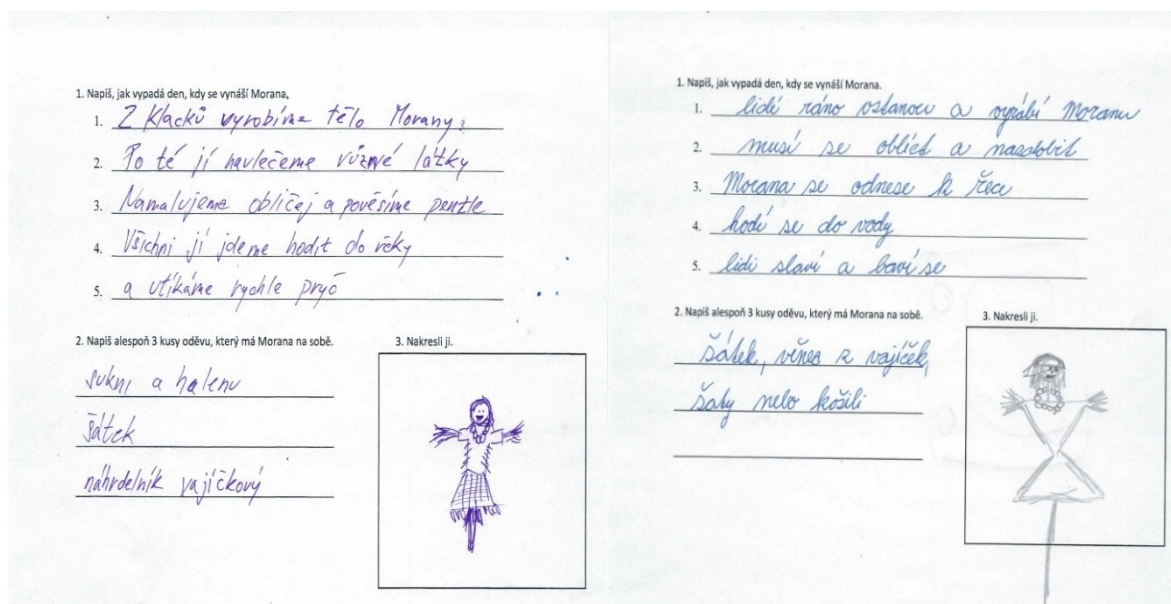 1. Napiš, jak vypadá den, kdy se vynáší Morana.
1. Z klacků vyrobíme tělo Morany.
2. Po té jí navlečeme různé látky
3. Namalujeme obličej a pověsíme pentle
4. Všichni jí jdeme hodit do řeky
5. a utíkáme rychle pryč
2. Napiš alespoň 3 kusy oděvu, který má Morana na sobě.
sukni a halenu
šátek
náhrdelník vajíčkový
3. Nakresli ji.
1. Napiš, jak vypadá den, kdy se vynáší Morana.
1. lidé ráno vstanou a vyrábí Moranu
2. musí se obléct a nazdobit
3. Morana se odnese k řece
4. hodí se do vody
5. lidi slaví a baví se
2. Napiš alespoň 3 kusy oděvu, který má Morana na sobě.
šátek, věnec z vajíček,
šaty nebo košili
3. Nakresli ji.